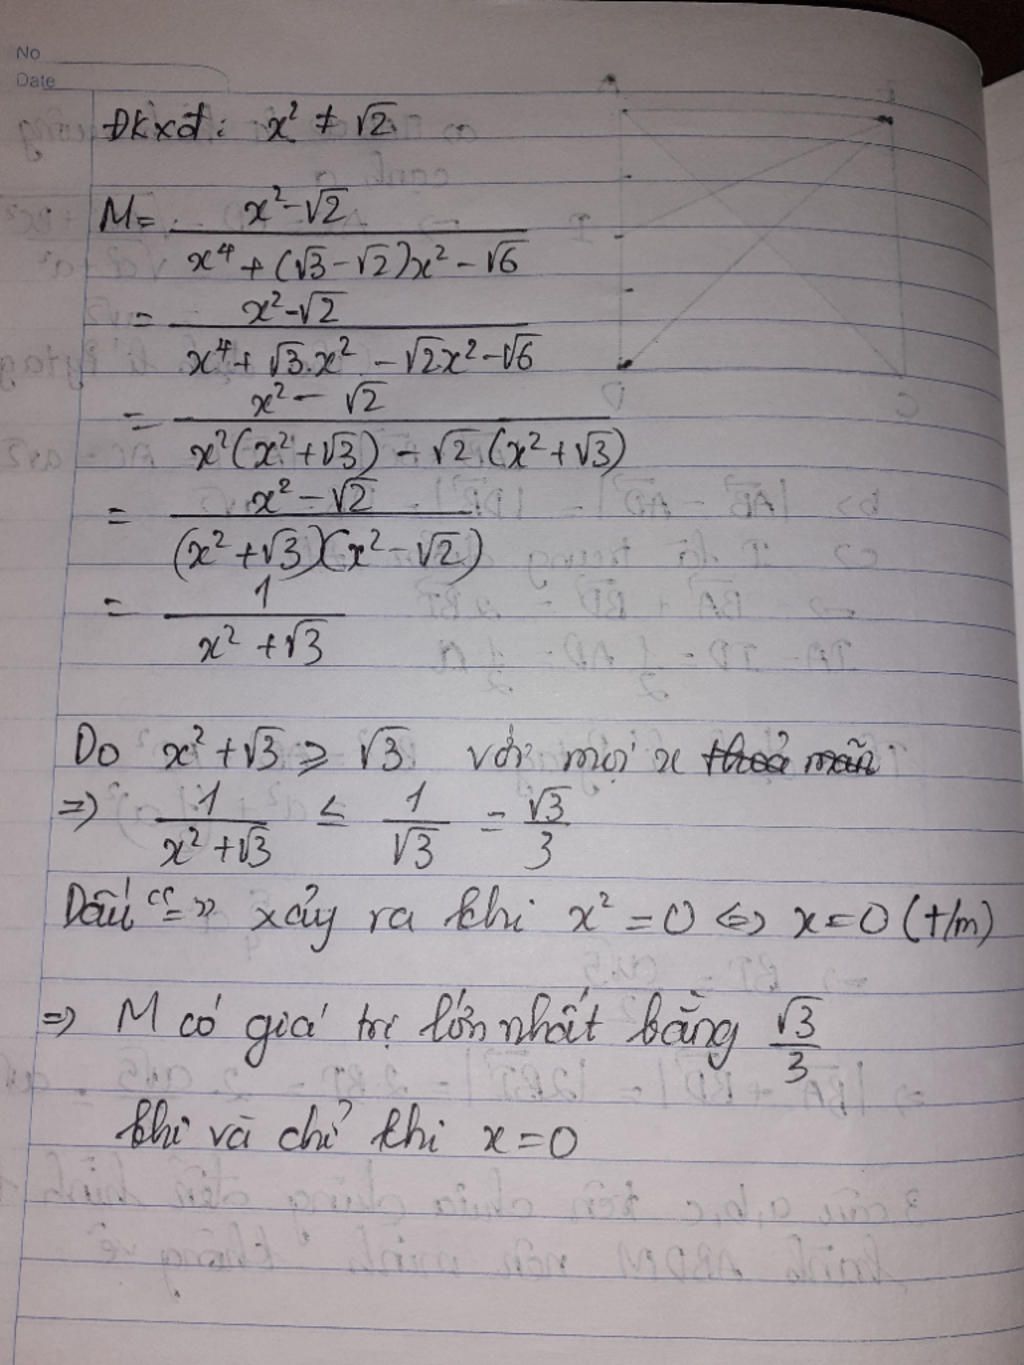 No
Date
ĐKXĐ: x² ≠ √2
M = (x² - √2) / (x⁴ + (√3 - √2)x² - √6)
= (x² - √2) / (x⁴ + √3.x² - √2x² - √6)
= (x² - √2) / (x²(x² + √3) - √2(x² + √3))
= (x² - √2) / ((x² + √3)(x² - √2))
= 1 / (x² + √3)
Do x² + √3 ≥ √3 với mọi x
=> 1 / (x² + √3) ≤ 1/√3 = √3/3
Dấu "=" xảy ra khi x² = 0 <=> x = 0 (t/m)
=> M có giá trị lớn nhất bằng √3/3
khi và chỉ khi x = 0